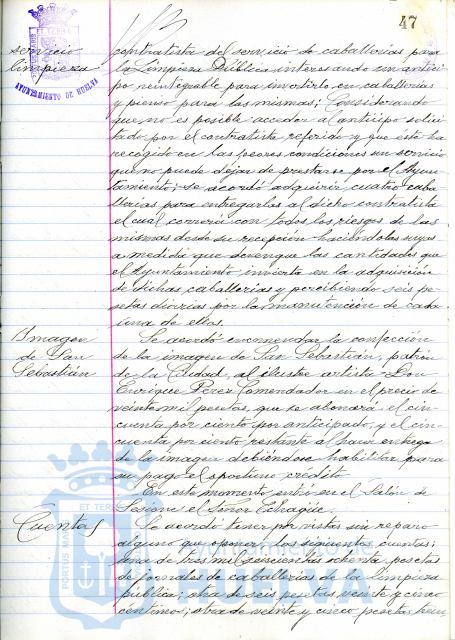 47
AYUNTAMIENTO DE HUELVA
servicio
limpieza
contratista del servicio de caballerias para
la Limpieza Pública interesando un antici-
po reintegrable para invertirlo en caballerías
y pienso para las mismas; Considerando
que no es posible acceder al anticipo solici-
tado por el contratista referido y que este ha
recogido en las peores condiciones un servicio
que no puede dejar de prestarse por el Ayun-
tamiento; se acordó adquirir cuatro caba-
llerias para entregarlas al dicho contratista
el cual correrá con todos los riesgos de las
mismas desde su recepción haciéndolas suyas
a medida que devengue las cantidades que
el Ayuntamiento invierta en la adquisición
de dichas caballerias y percibiendo seis pe-
setas diarias por la manutención de cada
una de ellas.
Imagen
de San
Sebastián
Se acordó encomendar la confección
de la imagen de San Sebastián, patrón
de la Ciudad, al ilustre artista Don
Enrique Perez Comendador en el precio de
veinte mil pesetas, que se abonará el cin-
cuenta por ciento por anticipado, y el cin-
cuenta por ciento restante al hacer entrega
de la imagen debiéndose habilitar para
su pago el oportuno crédito.
En este momento entró en el Salón de
Sesiones el Señor Echagüe.
Cuentas
Se acordó tener por vistas sin reparo
alguno que oponer, las siguientes cuentas;
una de tres mil seiscientas ochenta pesetas
de jornales de caballerias de la limpieza
pública; otra de seis pesetas veinte y cinco
centimos; otra de veinte y cinco pesetas
PORTUS MARIS
ET TERRAE
Ayuntamiento de
HUELVA